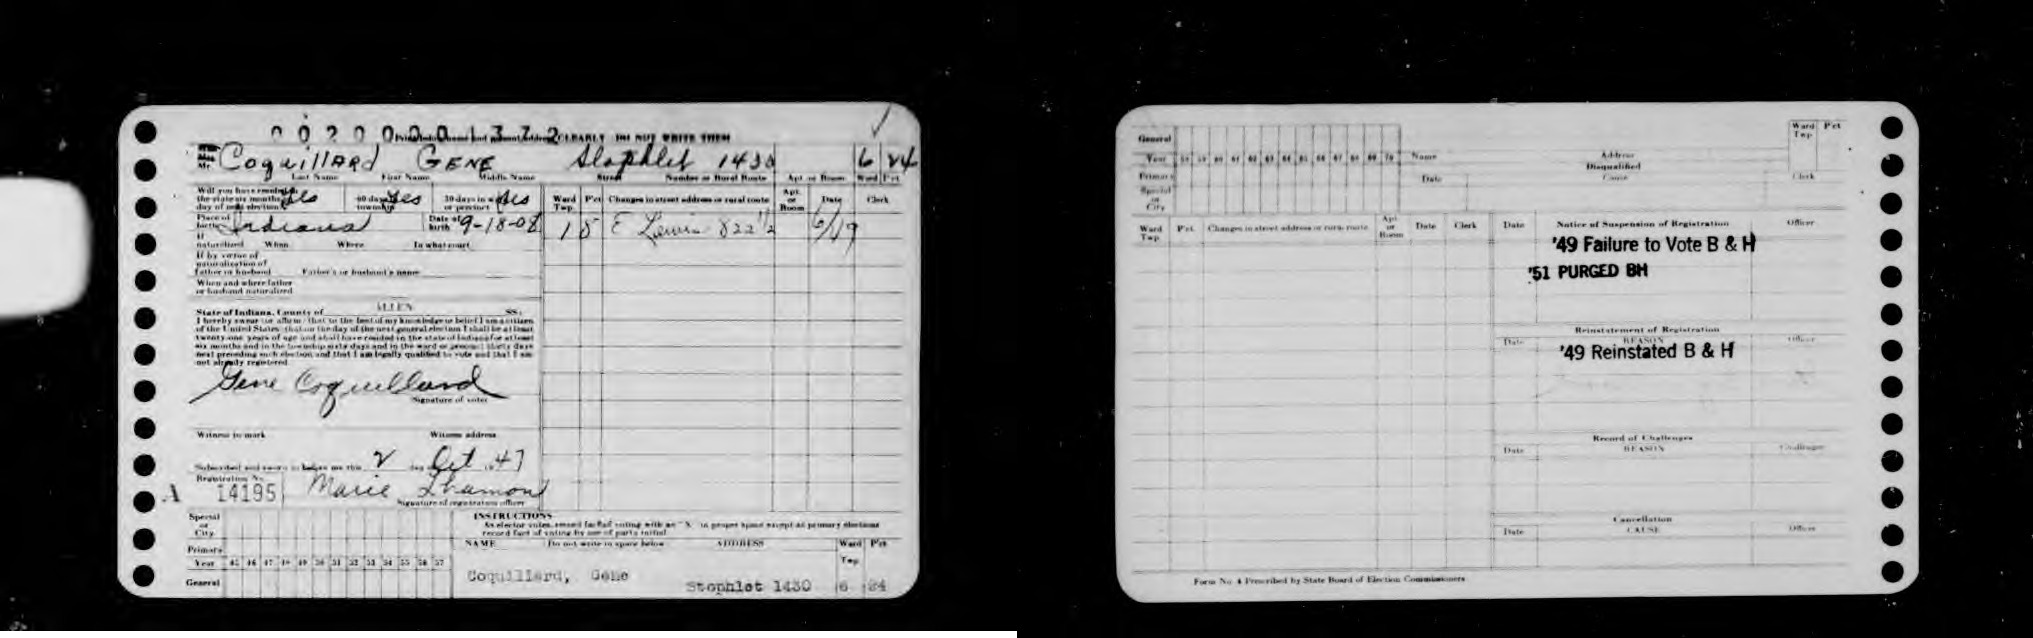 0 0 2 0 0 0 1 3 7 2 CLEARLY DO NOT WRITE THEM
Coquillard Gene Stophlet 1430 6 24
Last Name First Name Middle Name Street Number or Rural Route Apt. or Room Ward Pct.
Will you have resided in the state six months day of next election Yes 60 days township Yes 30 days in ward or precinct Yes
Ward Twp. Pct. Changes in street address or rural route Apt. or Room Date Clerk
Place of birth Indiana Date of birth 9-18-08
1 5 E Lewis 822 1/2 6/19
If naturalized When Where In what court
If by virtue of naturalization of father or husband Father's or husband's name
When and where father or husband naturalized
ALLEN
State of Indiana, County of SS:
I hereby swear (or affirm) that to the best of my knowledge or belief I am a citizen
of the United States; that on the day of the next general election I shall be at least
twenty-one years of age and shall have resided in the state of Indiana for at least
six months and in the township sixty days and in the ward or precinct thirty days
next preceding such election and that I am legally qualified to vote and that I am
not already registered.
Gene Coquillard
Signature of voter
Witness to mark Witness address
Subscribed and sworn to before me this 2 day Oct 1947
Registration No.
A 14195 Marie Lhamon
Signature of registration officer
Special or City
Primary
Year 45 46 47 48 49 50 51 52 53 54 55 56 57
General
INSTRUCTIONS
As elector votes, record fact of voting with an "X" in proper space except at primary elections
record fact of voting by use of party initial
NAME Do not write in space below ADDRESS Ward Twp Pct.
Coquillard, Gene Stophlet 1430 6 24
General
Year 58 59 60 61 62 63 64 65 66 67 68 69 70 Name Address Ward Twp Pct
Primary Disqualified
Special or City Date Cause Clerk
Ward Twp. Pct. Changes in street address or rural route Apt. or Room Date Clerk
Date Notice of Suspension of Registration Officer
'49 Failure to Vote B & H
'51 PURGED BH
Reinstatement of Registration
Date REASON Officer
'49 Reinstated B & H
Record of Challenges
Date REASON Challenger
Cancellation
Date CAUSE Officer
Form No. 4 Prescribed by State Board of Election Commissioners